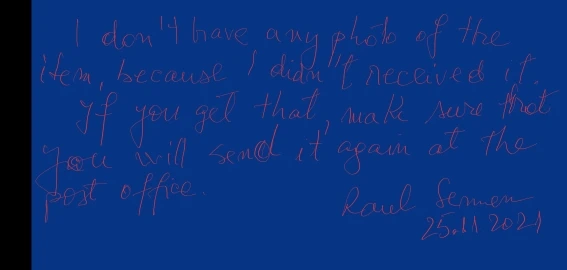 I don't have any photo of the
item, because I didn't received it.
If you get that, make sure that
you will send it again at the
post office.
Raul Semen
25.11 2021